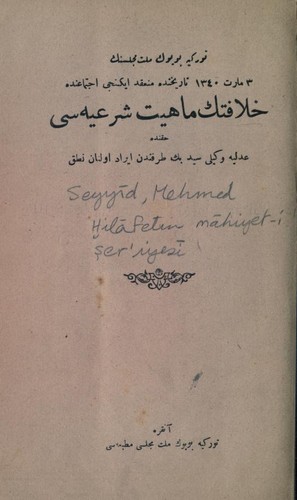 توركيه بويوك ملت مجلسنك
٣ مارت ١٣٤٠ تاريخنده منعقد ايكنجى اجتماعنده
خلافتك ماهيت شرعيه سى
حقنده
عدليه وكيلى سيد بك طرفندن ايراد اولنان نطق
Seyyid, Mehmed
Ḫilāfetin māhiyet-i
şer'iyesi
آنقره
توركيه بويوك ملت مجلسى مطبعه سى